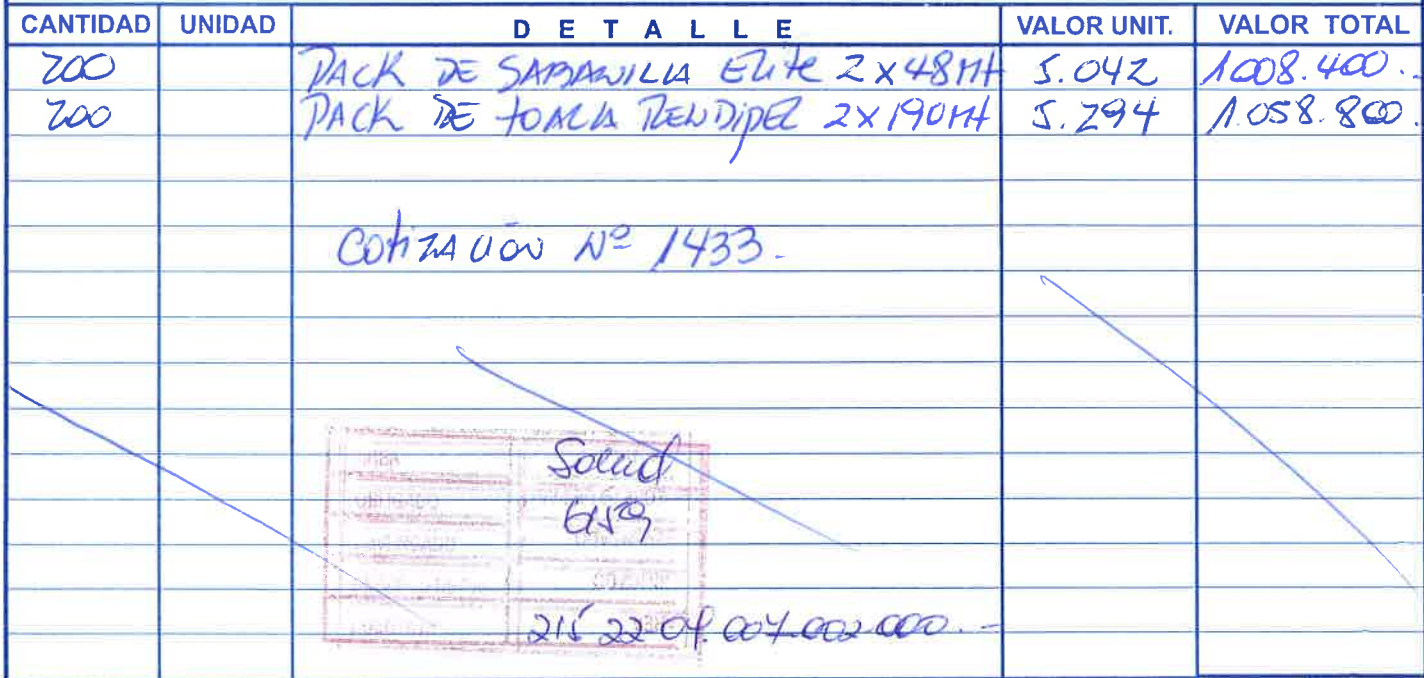 CANTIDAD UNIDAD DETALLE VALOR UNIT. VALOR TOTAL
200 PACK DE SABANILLA Elite 2x48Mt 5.042 1008.400.-
200 PACK DE tOALLA RENDIPEL 2x190Mt 5.294 1.058.800.
COtiZACIÓN Nº 1433.-
Salud
215 22-04.007.002.000.-